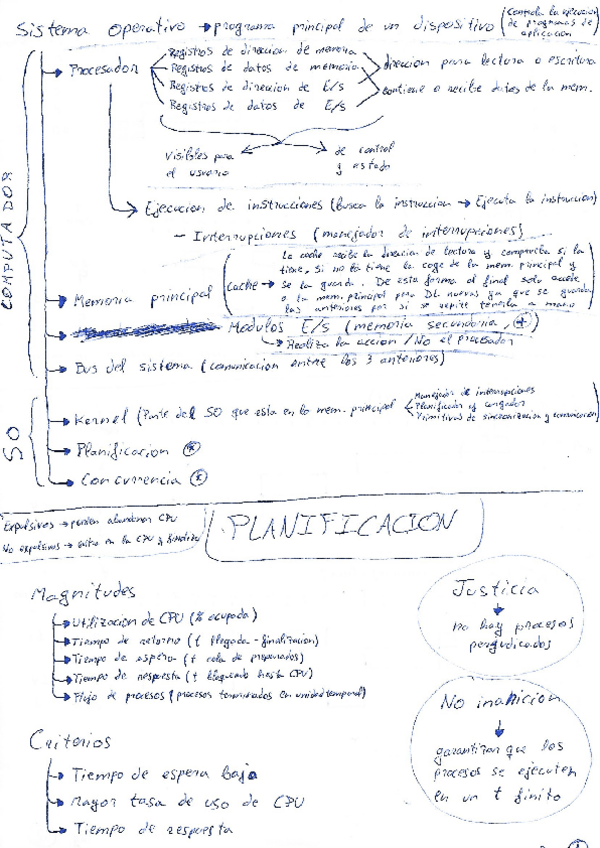 Sistema operativo → programa principal de un dispositivo (Controla la ejecucion
de programas de
aplicacion)
COMPUTADOR
Procesador
Registros de direccion de memoria
Registros de datos de memoria
Registros de direccion de E/S
Registros de datos de E/S
direccion para lectura o escritura
contiene o recibe datos de la mem.
Visibles para
el usuario
de control
y estado
Ejecucion de instrucciones (busca la instruccion → Ejecuta la instruccion)
- Interrupciones (manejador de interrupciones)
Memoria principal
Cache →
La cache recibe la direccion de lectura y comprueba si la
tiene, si no la tiene la coge de la mem. principal y
se la guarda. De esta forma al final solo accede
a la mem. principal para DL nuevas ya que se guarda
las anteriores por si se repite tenerla a mano
Modulos E/S (memoria secundaria, +)
Realiza la accion / No el procesador
Bus del sistema (comunicacion entre los 3 anteriores)
SO
Kernel (Parte del SO que esta en la mem. principal
Manejador de interrupciones
Planificador y cargador
Primitivas de sincronizacion y comunicacion)
Planificacion *
Concurrencia *
Expulsivos → pueden abandonar CPU
No expulsivos → entra en la CPU y finaliza
PLANIFICACION
Magnitudes
Utilizacion de CPU (% ocupada)
Tiempo de retorno (t llegada - finalizacion)
Tiempo de espera (t cola de preparados)
Tiempo de respuesta (t bloqueado hasta CPU)
Flujo de procesos (procesos terminados en unidad temporal)
Justicia
no hay procesos
perjudicados
No inanicion
garantizan que los
procesos se ejecuten
en un t finito
Criterios
Tiempo de espera bajo
Mayor tasa de uso de CPU
Tiempo de respuesta